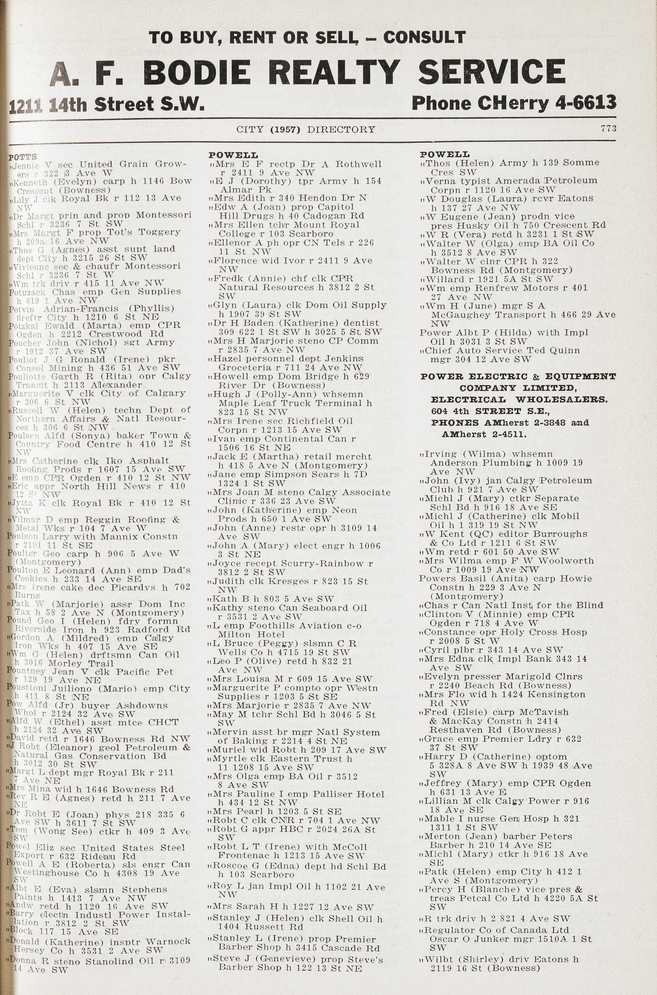 TO BUY, RENT OR SELL – CONSULT
A. F. BODIE REALTY SERVICE
1211 14th Street S.W. Phone CHerry 4-6613
CITY (1957) DIRECTORY 773
POTTS
"Jennie V sec United Grain Grow-
ers r 322 3 Ave W
"Kenneth (Evelyn) carp h 1146 Bow
Crescent (Bowness)
"Lily J clk Royal Bk r 112 13 Ave
NW
"Dr Margt prin and prop Montessori
Schl r 3236 7 St SW
"Mrs Margt F prop Tot's Toggery
h 209a 16 Ave NW
"Thos G (Agnes) asst supt land
dept City h 3215 26 St SW
"Vivienne sec & chaufr Montessori
Schl r 3236 7 St W
"Wm trk driv r 415 11 Ave NW
Potuzack Chas emp Gen Supplies
h 619 1 Ave NW
Potvin Adrian-Francis (Phyllis)
fireftr City h 1210 6 St NE
Potzkai Ewald (Marta) emp CPR
Ogden h 2212 Crestwood Rd
Poucher John (Nichol) sgt Army
r 1912 37 Ave SW
Pouliot J G Ronald (Irene) pkr
Consol Mining h 436 51 Ave SW
Pouliotte Garth R (Rita) opr Calgy
Transit h 2113 Alexander
"Marguerite V clk City of Calgary
r 306 6 St NW
"Russell W (Helen) techn Dept of
Northern Affairs & Natl Resour-
ces h 306 6 St NW
Poulsen Alfd (Sonya) baker Town &
Country Food Centre h 410 12 St
NW
"Mrs Catherine clk Iko Asphalt
Roofing Prods r 1607 15 Ave SW
"E emp CPR Ogden r 410 12 St NW
"Eric appr North Hill News r 410
12 St NW
"Jytta K clk Royal Bk r 410 12 St
NW
"Vilmar D emp Reggin Roofing &
Metal Wks r 104 7 Ave W
Poulson Larry with Mannix Constn
r 2101 11 St SE
Poulter Geo carp h 906 5 Ave W
(Montgomery)
Poulton E Leonard (Ann) emp Dad's
Cookies h 233 14 Ave SE
"Mrs Irene cake dec Picardvs h 702
Burns
"Patk W (Marjorie) assr Dom Inc
Tax h 58 2 Ave N (Montgomery)
Pound Geo I (Helen) fdry formn
Riverside Iron h 923 Radford Rd
"Gordon A (Mildred) emp Calgy
Iron Wks h 407 15 Ave SE
"Wm G (Helen) drftsmn Can Oil
h 3016 Morley Trail
Pountney Jean V clk Pacific Pet
r 129 19 Ave NE
Poustioni Juiliono (Mario) emp City
h 411 8 St NE
Pow Alfd (Jr) buyer Ashdowns
Whol r 2124 32 Ave SW
"Alfd W (Ethel) asst mtce CHCT
h 2124 32 Ave SW
"David retd r 1646 Bowness Rd NW
"J Robt (Eleanor) geol Petroleum &
Natural Gas Conservation Bd
h 3012 30 St SW
"Margt L dept mgr Royal Bk r 211
7 Ave NE
"Mrs Mina wid h 1646 Bowness Rd
"Rev R E (Agnes) retd h 211 7 Ave
NE
"Dr Robt E (Joan) phys 218 335 6
Ave SW h 3611 7 St SW
"Tom (Wong See) ctkr h 409 3 Ave
SW
Powel Eliz sec United States Steel
Export r 632 Rideau Rd
Powell A E (Roberta) sls engr Can
Westinghouse Co h 4308 19 Ave
SW
"Albt E (Eva) slsmn Stephens
Paints h 1413 7 Ave NW
"Andw retd h 1120 16 Ave SW
"Barry electn Industl Power Instal-
lation r 3812 2 St SW
"Block 117 15 Ave SE
"Donald (Katherine) insptr Warnock
Hersey Co h 3531 2 Ave SW
"Donna R steno Stanolind Oil r 3109
14 Ave SW
POWELL
"Mrs E F rectp Dr A Rothwell
r 2411 9 Ave NW
"E J (Dorothy) tpr Army h 154
Almar Pk
"Mrs Edith r 340 Hendon Dr N
"Edw A (Joan) prop Capitol
Hill Drugs h 40 Cadogan Rd
"Mrs Ellen tchr Mount Royal
College r 103 Scarboro
"Ellenor A ph opr CN Tels r 226
11 St NW
"Florence wid Ivor r 2411 9 Ave
NW
"Fredk (Annie) chf clk CPR
Natural Resources h 3812 2 St
SW
"Glyn (Laura) clk Dom Oil Supply
h 1907 39 St SW
"Dr H Baden (Katherine) dentist
309 622 1 St SW h 3025 5 St SW
"Mrs H Marjorie steno CP Comm
r 2835 7 Ave NW
"Hazel personnel dept Jenkins
Groceteria r 711 24 Ave NW
"Howell emp Dom Bridge h 629
River Dr (Bowness)
"Hugh J (Polly-Ann) whsemn
Maple Leaf Truck Terminal h
823 15 St NW
"Mrs Irene sec Richfield Oil
Corpn r 1213 15 Ave SW
"Ivan emp Continental Can r
1506 16 St NE
"Jack E (Martha) retail mercht
h 418 5 Ave N (Montgomery)
"Jane emp Simpson Sears h 7D
1324 1 St SW
"Mrs Joan M steno Calgary Associate
Clinic r 336 23 Ave SW
"John (Katherine) emp Neon
Prods h 650 1 Ave SW
"John (Anne) restr opr h 3109 14
Ave SW
"John A (Mary) elect engr h 1006
3 St NE
"Joyce recept Scurry-Rainbow r
3812 2 St SW
"Judith clk Kresges r 823 15 St
NW
"Kath B h 803 5 Ave SW
"Kathy steno Can Seaboard Oil
r 3531 2 Ave SW
"L emp Foothills Aviation c-o
Milton Hotel
"L Bruce (Peggy) slsmn C R
Wells Co h 4715 19 St SW
"Leo P (Olive) retd h 832 21
Ave NW
"Mrs Louisa M r 609 15 Ave SW
"Marguerite P compto opr Westn
Supplies r 1203 5 St SE
"Mrs Marjorie r 2835 7 Ave NW
"May M tchr Schl Bd h 3046 5 St
SW
"Mervin asst br mgr Natl System
of Baking r 2214 4 St NE
"Muriel wid Robt h 209 17 Ave SW
"Myrtle clk Eastern Trust h
11 1208 15 Ave SW
"Mrs Olga emp BA Oil r 3512
8 Ave SW
"Mrs Pauline I emp Palliser Hotel
h 434 12 St NW
"Mrs Pearl h 1203 5 St SE
"Robt C clk CNR r 704 1 Ave NW
"Robt G appr HBC r 2024 26A St
SW
"Robt L T (Irene) with McColl
Frontenac h 1213 15 Ave SW
"Roscoe G (Edna) dept hd Schl Bd
h 103 Scarboro
"Roy L jan Impl Oil h 1102 21 Ave
NW
"Mrs Sarah H h 1227 12 Ave SW
"Stanley J (Helen) clk Shell Oil h
1404 Russett Rd
"Stanley L (Irene) prop Premier
Barber Shop h 3415 Cascade Rd
"Steve J (Genevieve) prop Steve's
Barber Shop h 122 13 St NE
POWELL
"Thos (Helen) Army h 139 Somme
Cres SW
"Verna typist Amerada Petroleum
Corpn r 1120 16 Ave SW
"W Douglas (Laura) rcvr Eatons
h 137 27 Ave NW
"W Eugene (Jean) prodn vice
pres Husky Oil h 750 Crescent Rd
"W R (Vera) retd h 3231 1 St SW
"Walter W (Olga) emp BA Oil Co
h 3512 8 Ave SW
"Walter W clnr CPR h 322
Bowness Rd (Montgomery)
"Willard r 1921 5A St SW
"Wm emp Renfrew Motors r 401
27 Ave NW
"Wm H (June) mgr S A
McGaughey Transport h 466 29 Ave
NW
Power Albt P (Hilda) with Impl
Oil h 3031 3 St SW
"Chief Auto Service Ted Quinn
mgr 304 12 Ave SW
POWER ELECTRIC & EQUIPMENT
COMPANY LIMITED,
ELECTRICAL WHOLESALERS.
604 4th STREET S.E.,
PHONES AMherst 2-3848 and
AMherst 2-4511.
"Irving (Wilma) whsemn
Anderson Plumbing h 1009 19
Ave NW
"John (Ivy) jan Calgy Petroleum
Club h 921 7 Ave SW
"Michl J (Mary) ctkr Separate
Schl Bd h 916 18 Ave SE
"Michl J (Catherine) clk Mobil
Oil h 1 319 19 St NW
"W Kent (QC) editor Burroughs
& Co Ltd r 1211 6 St SW
"Wm retd r 601 50 Ave SW
"Mrs Wilma emp F W Woolworth
Co r 1009 19 Ave NW
Powers Basil (Anita) carp Howie
Constn h 229 3 Ave N
(Montgomery)
"Chas r Can Natl Inst for the Blind
"Clinton V (Minnie) emp CPR
Ogden r 718 4 Ave W
"Constance opr Holy Cross Hosp
r 2008 5 St W
"Cyril plbr r 343 14 Ave SW
"Mrs Edna clk Impl Bank 343 14
Ave SW
"Evelyn presser Marigold Clnrs
r 2240 Beach Rd (Bowness)
"Mrs Flo wid h 1424 Kensington
Rd NW
"Fred (Elsie) carp McTavish
& MacKay Constn h 2414
Resthaven Rd (Bowness)
"Grace emp Premier Ldry r 632
37 St SW
"Harry D (Catherine) optom
5 328A 8 Ave SW h 1939 48 Ave
SW
"Jeffrey (Mary) emp CPR Ogden
h 631 13 Ave E
"Lillian M clk Calgy Power r 916
18 Ave SE
"Mable I nurse Gen Hosp h 321
1311 1 St SW
"Merton (Jean) barber Peters
Barber h 210 14 Ave SE
"Michl (Mary) ctkr h 916 18 Ave
SE
"Patk (Helen) emp City h 412 1
Ave S (Montgomery)
"Percy H (Blanche) vice pres &
treas Petcal Co Ltd h 4220 5A St
SW
"R trk driv h 2 821 4 Ave SW
"Regulator Co of Canada Ltd
Oscar O Junker mgr 1510A 1 St
SW
"Wilbt (Shirley) driv Eatons h
2119 16 St (Bowness)